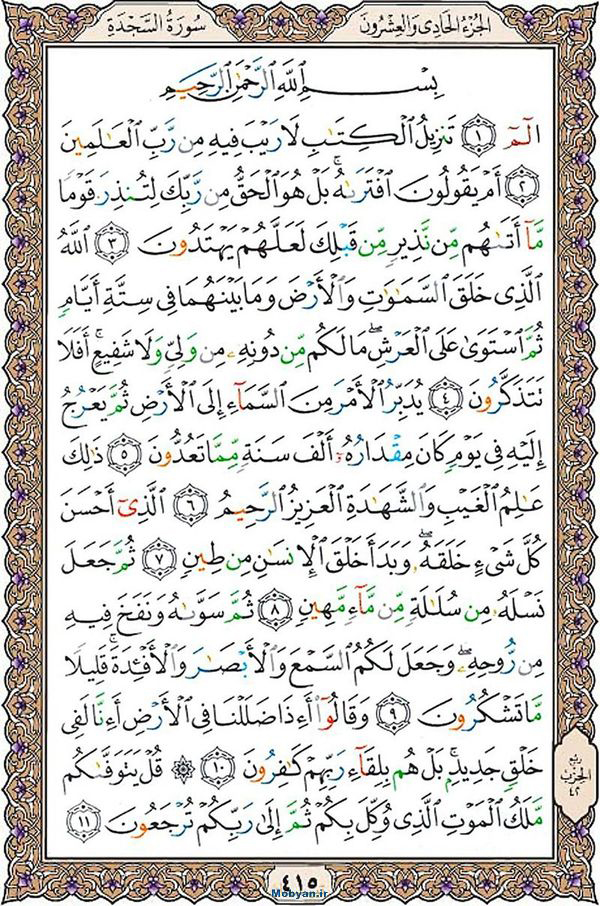 الجزء الحادي والعشرون
سورة السجدة
بِسْمِ اللَّهِ الرَّحْمَٰنِ الرَّحِيمِ
الٓمٓ ١ تَنزِيلُ الْكِتَٰبِ لَا رَيْبَ فِيهِ مِن رَّبِّ الْعَٰلَمِينَ
٢ أَمْ يَقُولُونَ افْتَرَىٰهُ ۚ بَلْ هُوَ الْحَقُّ مِن رَّبِّكَ لِتُنذِرَ قَوْمًا
مَّآ أَتَىٰهُم مِّن نَّذِيرٍ مِّن قَبْلِكَ لَعَلَّهُمْ يَهْتَدُونَ ٣ اللَّهُ
الَّذِي خَلَقَ السَّمَٰوَٰتِ وَالْأَرْضَ وَمَا بَيْنَهُمَا فِي سِتَّةِ أَيَّامٍ
ثُمَّ اسْتَوَىٰ عَلَى الْعَرْشِ ۖ مَا لَكُم مِّن دُونِهِۦ مِن وَلِيٍّ وَلَا شَفِيعٍ ۚ أَفَلَا
تَتَذَكَّرُونَ ٤ يُدَبِّرُ الْأَمْرَ مِنَ السَّمَآءِ إِلَى الْأَرْضِ ثُمَّ يَعْرُجُ
إِلَيْهِ فِي يَوْمٍ كَانَ مِقْدَارُهُۥٓ أَلْفَ سَنَةٍ مِّمَّا تَعُدُّونَ ٥ ذَٰلِكَ
عَٰلِمُ الْغَيْبِ وَالشَّهَٰدَةِ الْعَزِيزُ الرَّحِيمُ ٦ الَّذِيٓ أَحْسَنَ
كُلَّ شَيْءٍ خَلَقَهُۥ ۖ وَبَدَأَ خَلْقَ الْإِنسَٰنِ مِن طِينٍ ٧ ثُمَّ جَعَلَ
نَسْلَهُۥ مِن سُلَٰلَةٍ مِّن مَّآءٍ مَّهِينٍ ٨ ثُمَّ سَوَّىٰهُ وَنَفَخَ فِيهِ
مِن رُّوحِهِۦ ۖ وَجَعَلَ لَكُمُ السَّمْعَ وَالْأَبْصَٰرَ وَالْأَفْـِٔدَةَ ۚ قَلِيلًا
مَّا تَشْكُرُونَ ٩ وَقَالُوٓا أَءِذَا ضَلَلْنَا فِي الْأَرْضِ أَءِنَّا لَفِي
خَلْقٍ جَدِيدٍۭ ۚ بَلْ هُم بِلِقَآءِ رَبِّهِمْ كَٰفِرُونَ ١٠ ۞ قُلْ يَتَوَفَّىٰكُم
مَّلَكُ الْمَوْتِ الَّذِي وُكِّلَ بِكُمْ ثُمَّ إِلَىٰ رَبِّكُمْ تُرْجَعُونَ ١١
ربع
الحزب
٤٢
٤١٥
Mobyan.ir